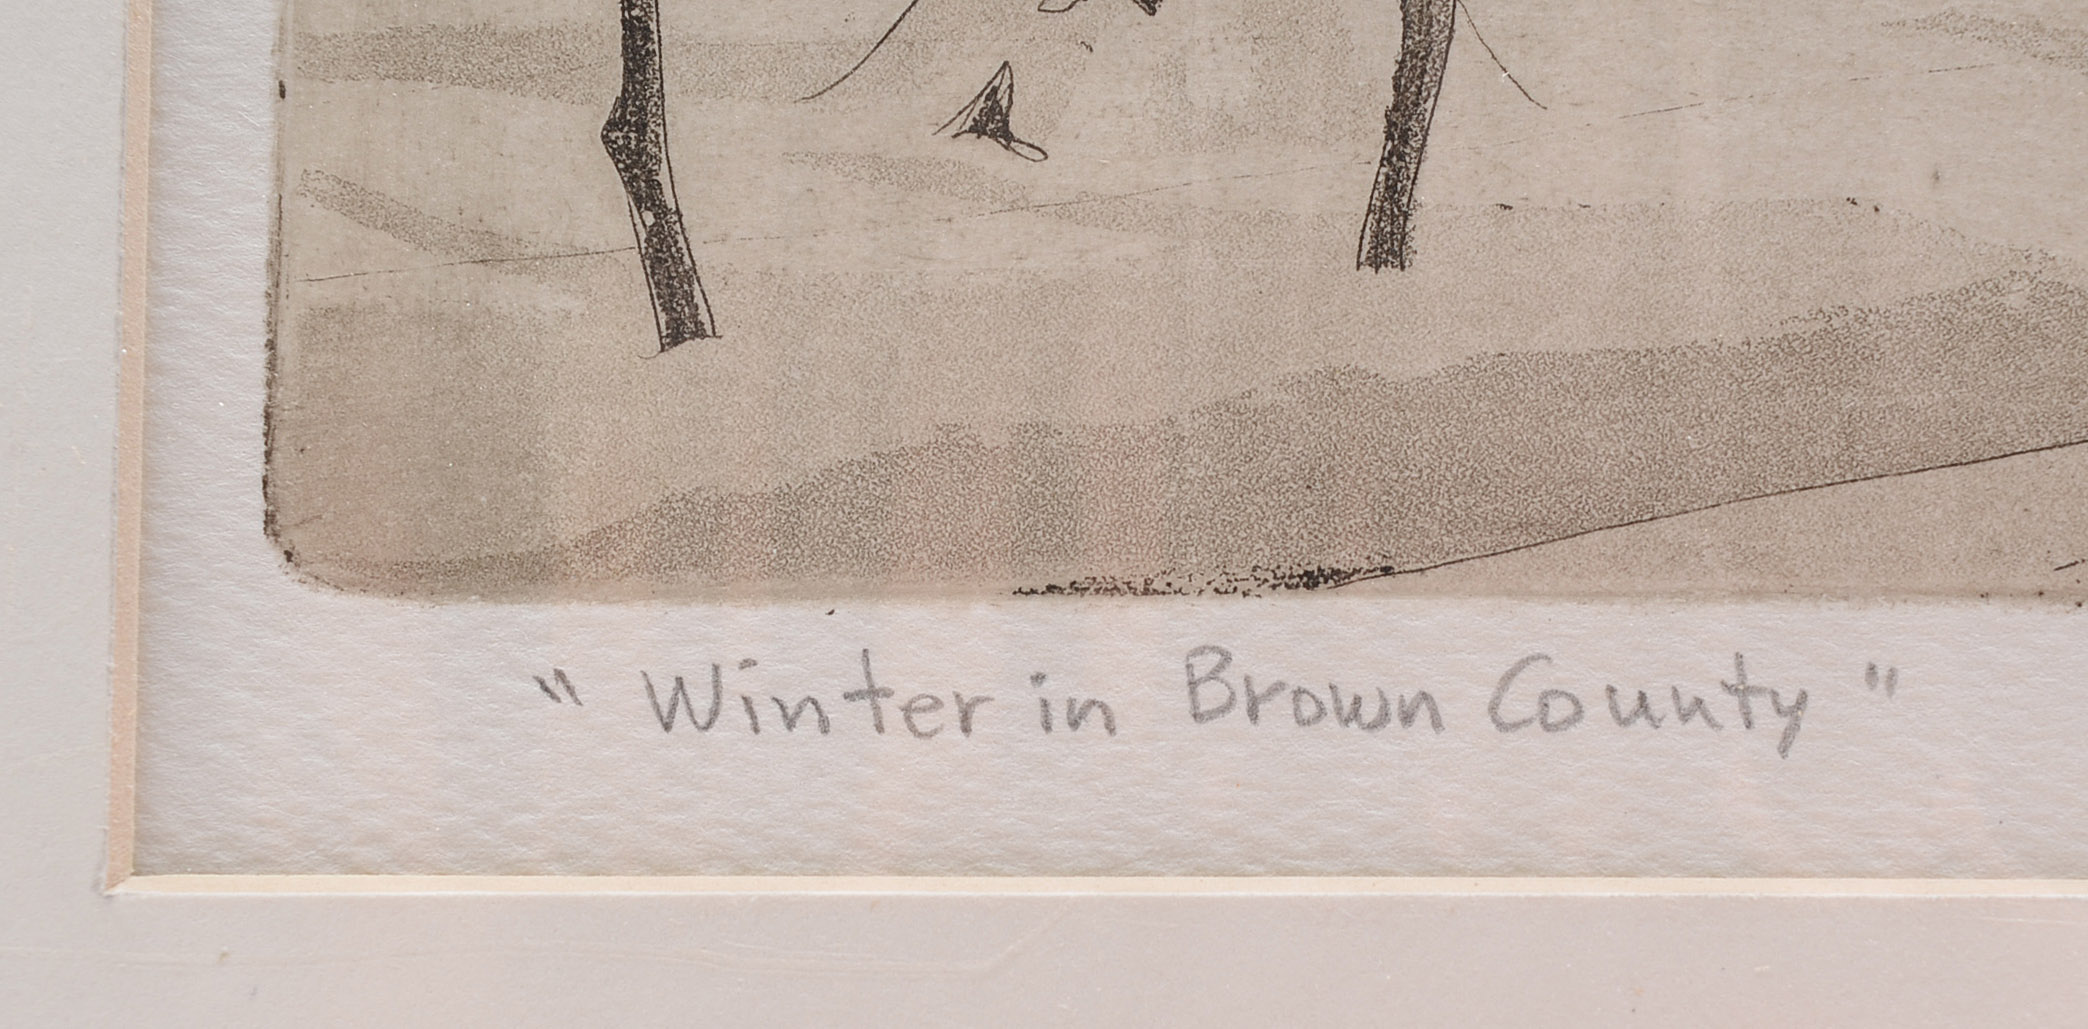 " Winter in Brown County "